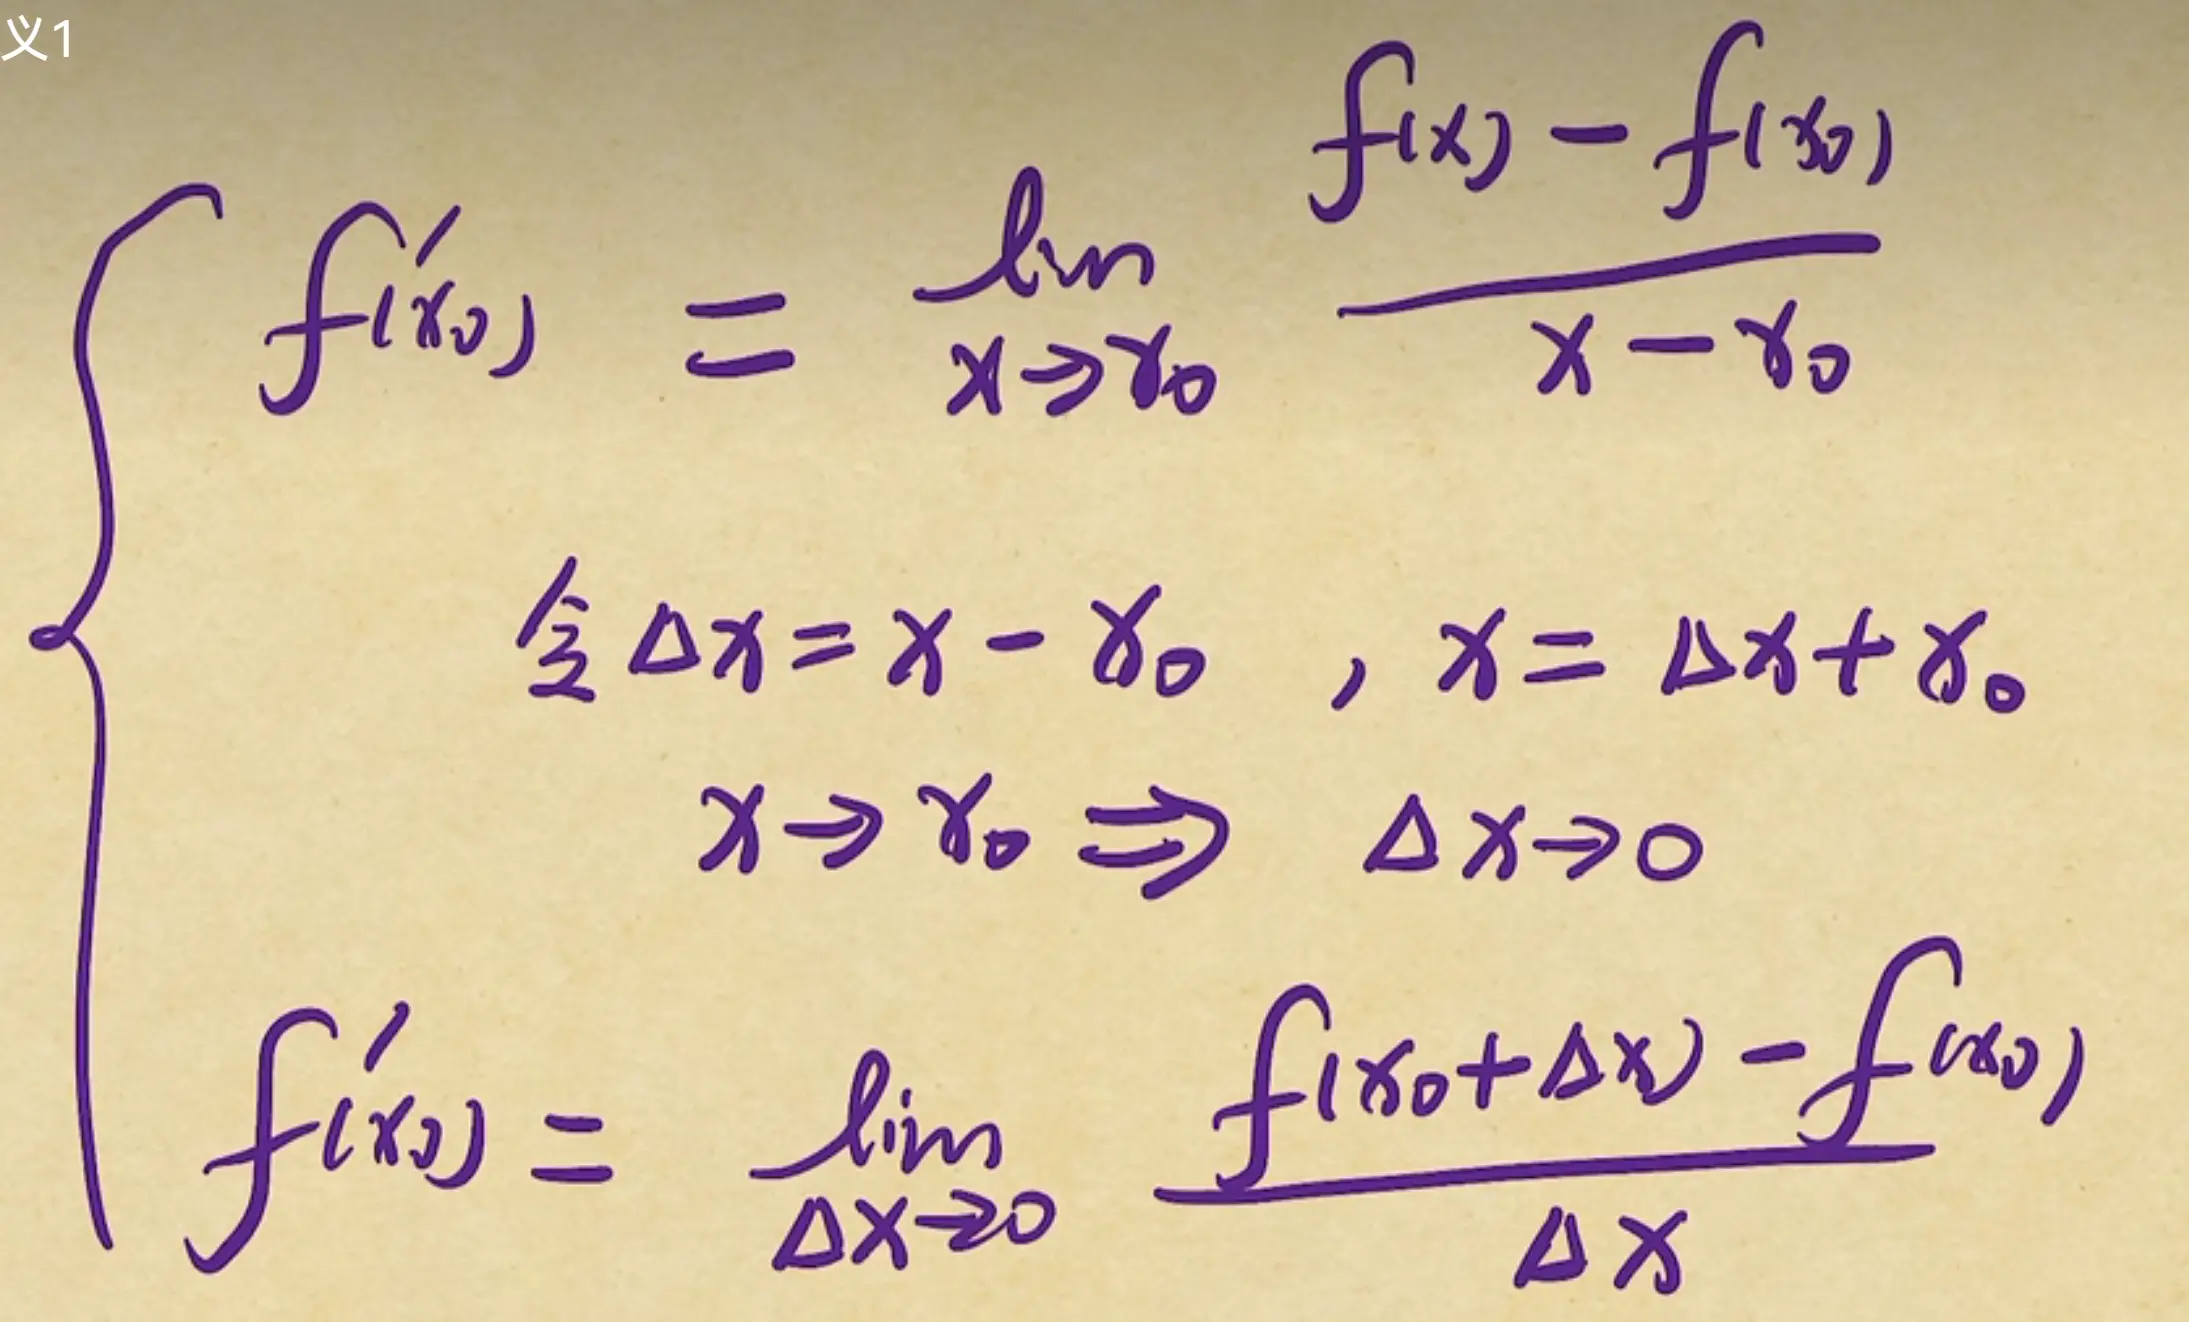 义1
f'(x₀) = lim_{x→x₀} \frac{f(x) - f(x₀)}{x - x₀}
令 Δx = x - x₀ , x = Δx + x₀
x → x₀ ⇒ Δx → 0
f'(x₀) = lim_{Δx→0} \frac{f(x₀+Δx) - f(x₀)}{Δx}